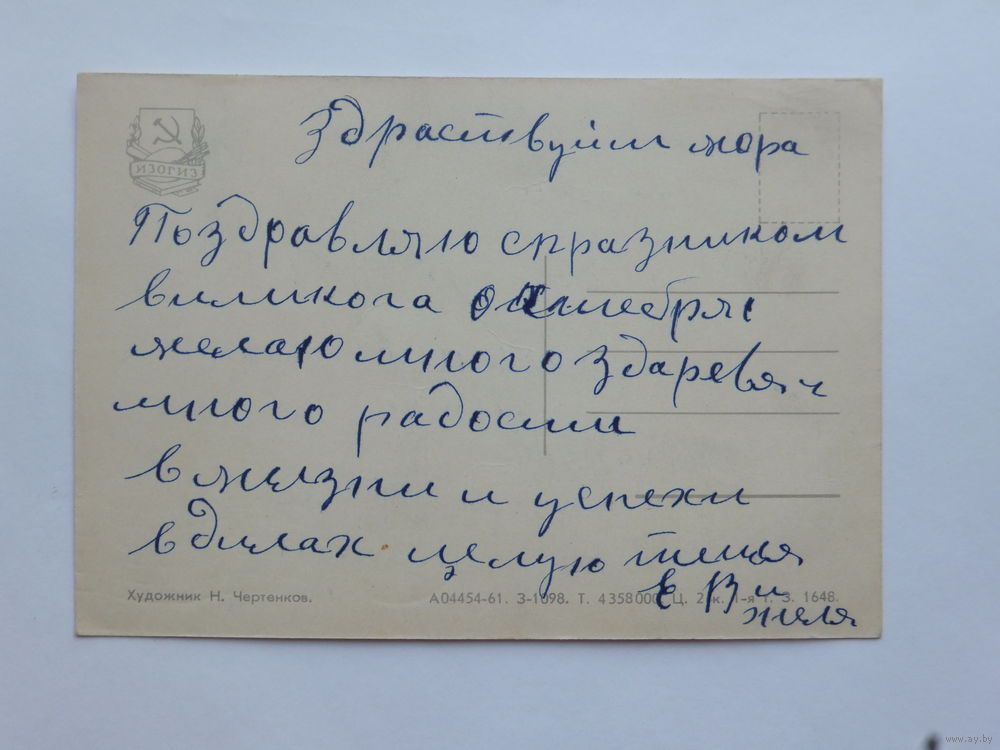 ИЗОГИЗ
здраствуйти жора
Поздравляю спразником
виликога октебря
желаю много здаревя и
много радости
в жизни и успехи
в дилах целую тибя
Е В и
Художник Н. Чертенков.
А04454-61. З-1098. Т. 4358000. Ц. 2 к. 1-я т. З. 1648.
www.ay.by